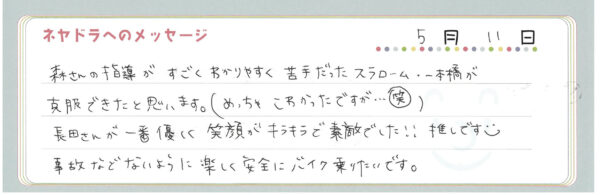 ネヤドラへのメッセージ
5月 11日
森さんの指導が すごく わかりやすく 苦手だった スラローム・一本橋が
克服できたと思います。(めっちゃ こわかったですが…笑)
長田さんが一番優しく 笑顔がキラキラで素敵でした!! 推しです
事故などないように 楽しく安全に バイク乗りたいです。